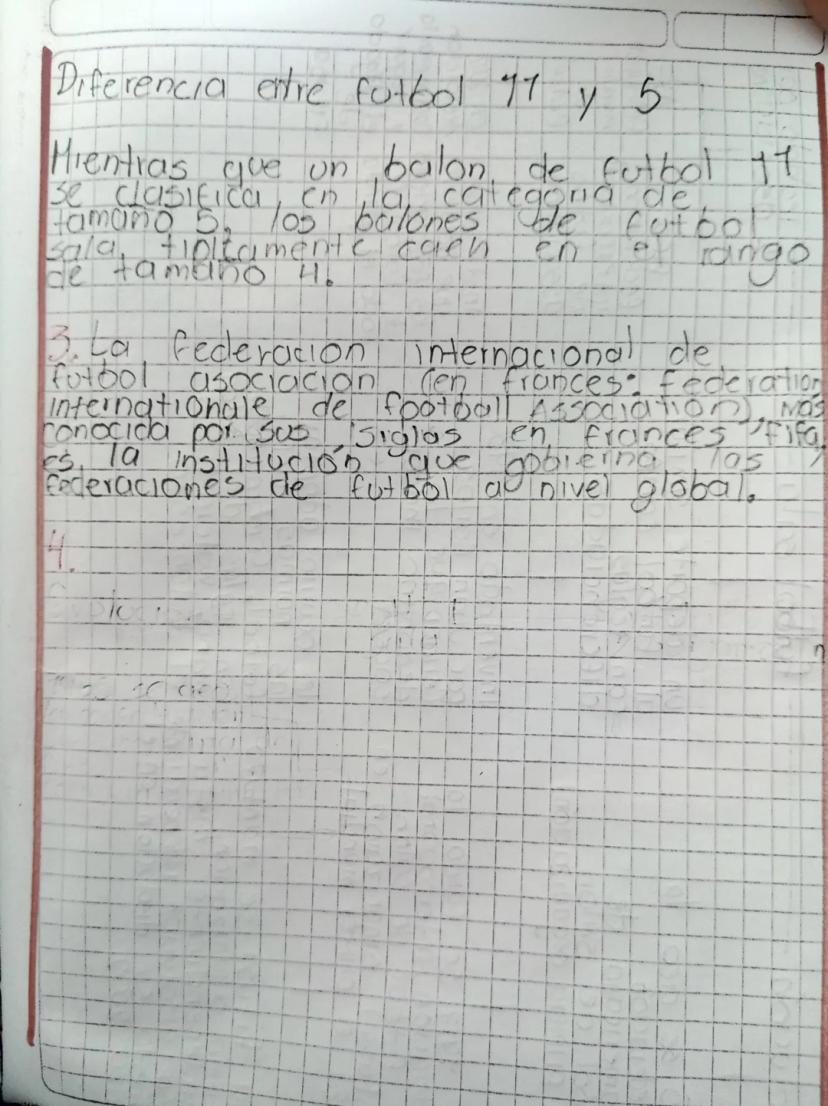 Diferencia entre futbol 11 y 5
Mientras que un balon de futbol 11
se clasifica en la categoria de
tamaño 5, los balones de futbol
sala, tipicamente caen en el rango
de tamaño 4.
3. La federacion internacional de
futbol asociacion (en frances: federation
internationale de football Association), mas
conocida por sus siglas en frances fifa,
es la institución que gobierna las
federaciones de futbol a nivel global.
4.